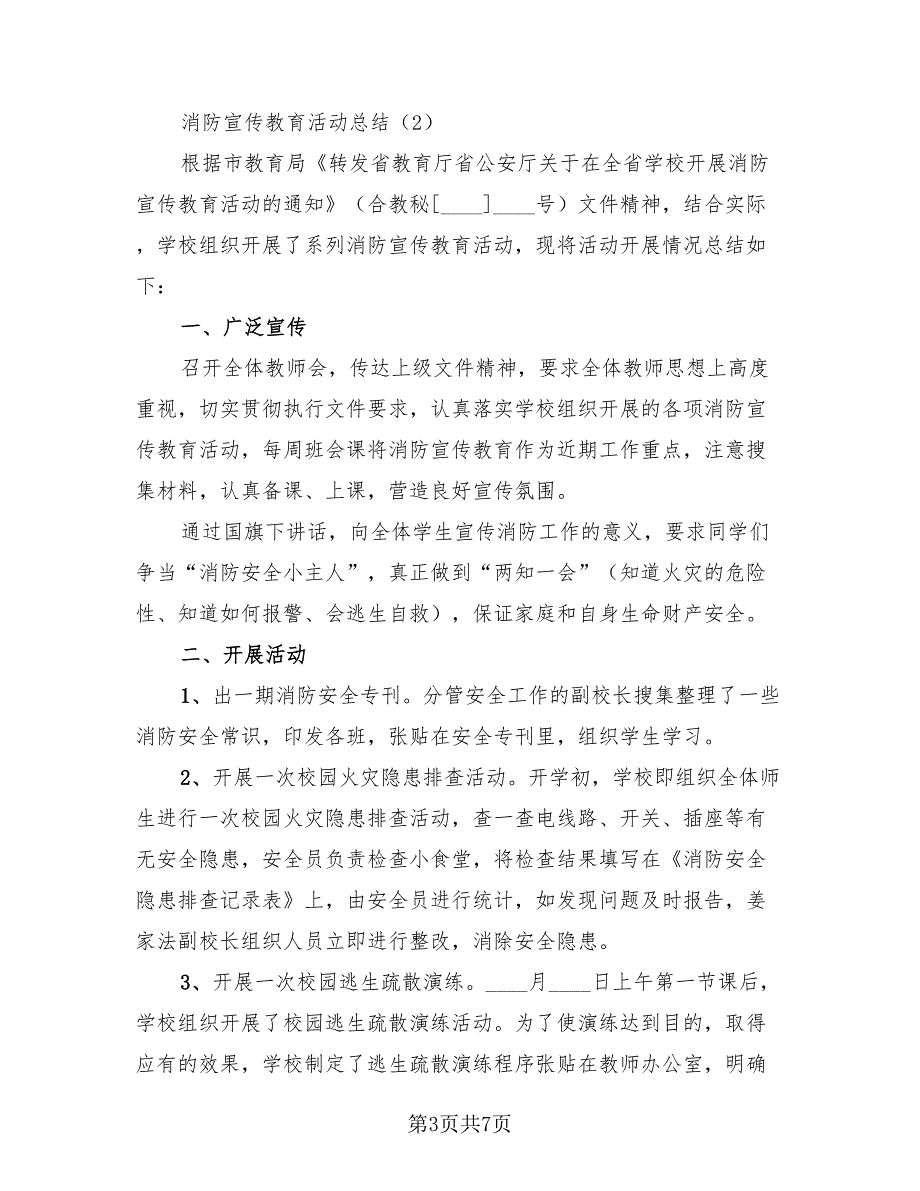 消防宣传教育活动总结（2）
根据市教育局《转发省教育厅省公安厅关于在全省学校开展消防
宣传教育活动的通知》（合教秘[____]____号）文件精神，结合实际
，学校组织开展了系列消防宣传教育活动，现将活动开展情况总结如
下：
一、广泛宣传
召开全体教师会，传达上级文件精神，要求全体教师思想上高度
重视，切实贯彻执行文件要求，认真落实学校组织开展的各项消防宣
传教育活动，每周班会课将消防宣传教育作为近期工作重点，注意搜
集材料，认真备课、上课，营造良好宣传氛围。
通过国旗下讲话，向全体学生宣传消防工作的意义，要求同学们
争当“消防安全小主人”，真正做到“两知一会”（知道火灾的危险
性、知道如何报警、会逃生自救），保证家庭和自身生命财产安全。
二、开展活动
1、出一期消防安全专刊。分管安全工作的副校长搜集整理了一些
消防安全常识，印发各班，张贴在安全专刊里，组织学生学习。
2、开展一次校园火灾隐患排查活动。开学初，学校即组织全体师
生进行一次校园火灾隐患排查活动，查一查电线路、开关、插座等有
无安全隐患，安全员负责检查小食堂，将检查结果填写在《消防安全
隐患排查记录表》上，由安全员进行统计，如发现问题及时报告，姜
家法副校长组织人员立即进行整改，消除安全隐患。
3、开展一次校园逃生疏散演练。____月____日上午第一节课后，
学校组织开展了校园逃生疏散演练活动。为了使演练达到目的，取得
应有的效果，学校制定了逃生疏散演练程序张贴在教师办公室，明确
第3页共7页